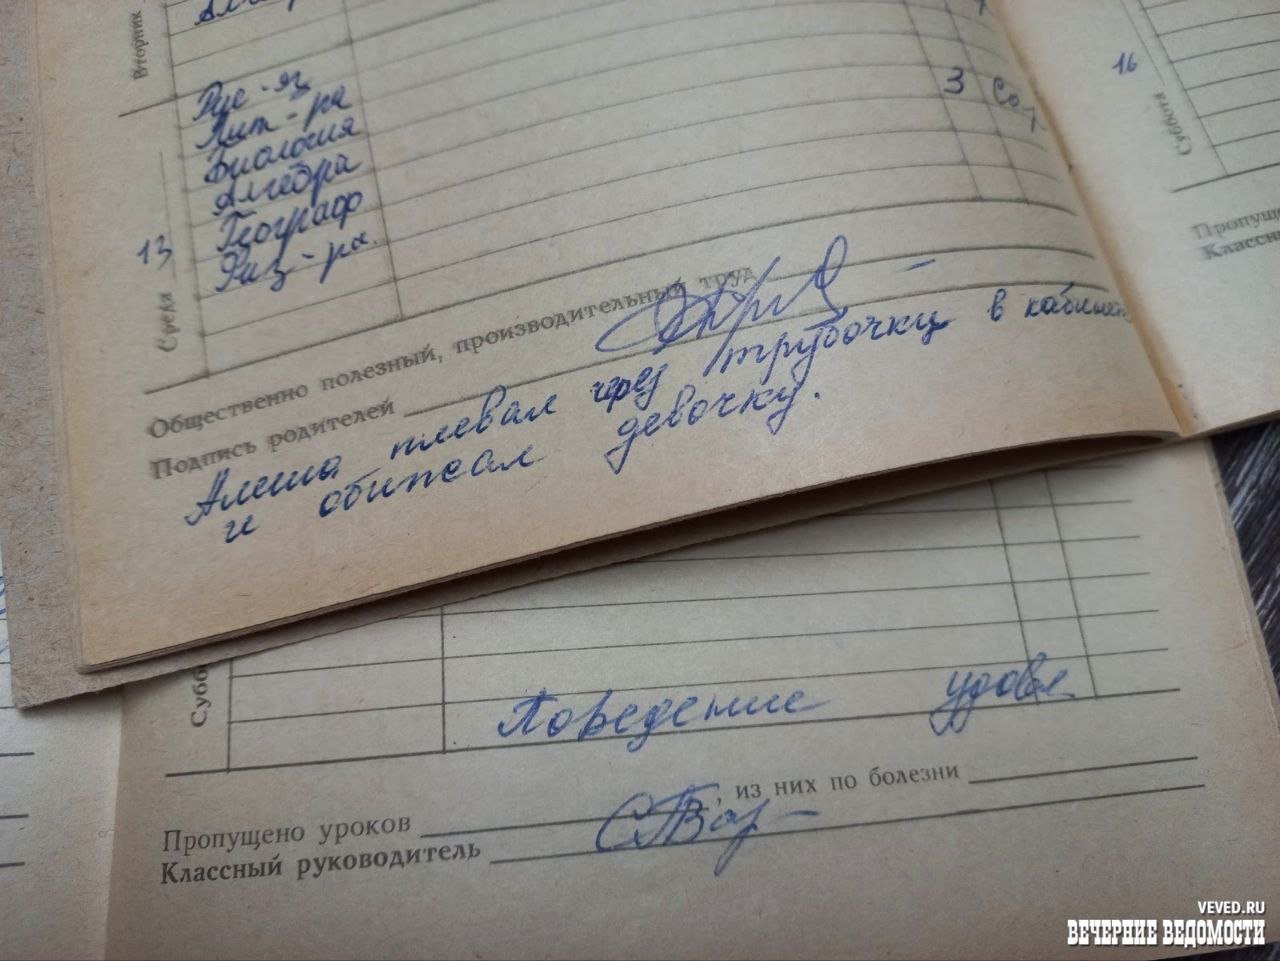 Вторник
Рус-яз
Лит-ра
Биология
Алгебра
Географ
Физ-ра.
Среда
13
3
16
Суббота
Общественно полезный, производительный труд
Подпись родителей
Алеша плевал через трубочку в кабинет
и обижал девочку.
Пропуще
Классны
Субб
Поведение удовл
Пропущено уроков , из них по болезни
Классный руководитель
VEVED.RU
ВЕЧЕРНИЕ ВЕДОМОСТИ